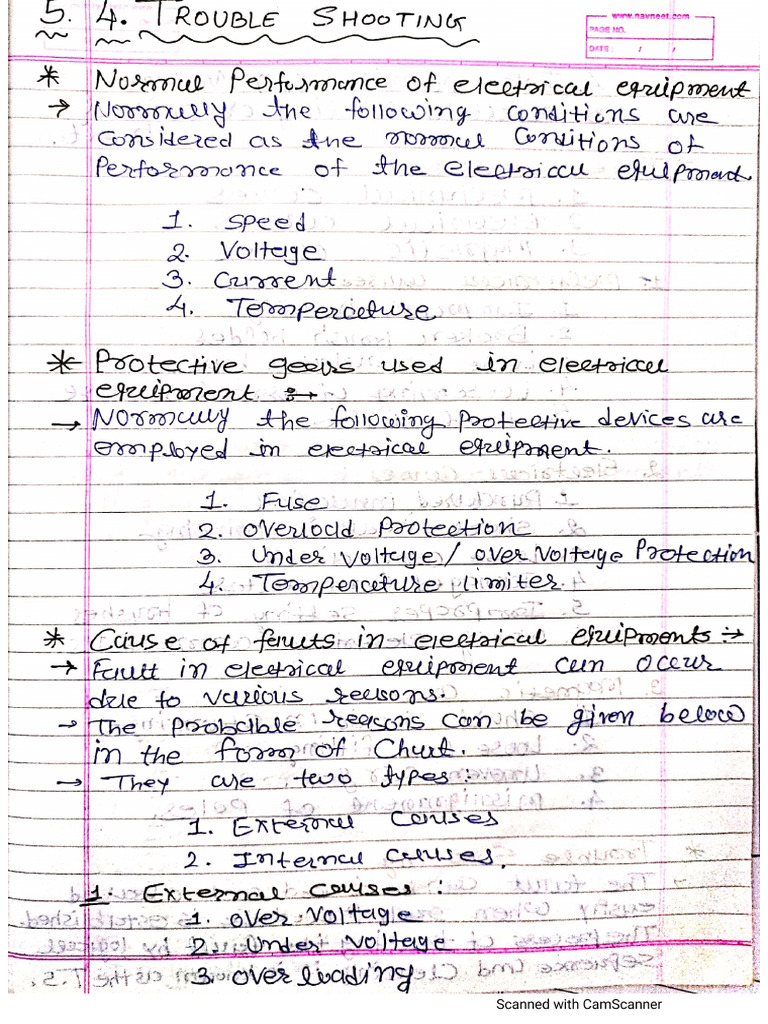 5. 4. TROUBLE SHOOTING
www.navneet.com
PAGE NO.
DATE: / /
* Normal Performance of electrical equipment
→ Normally the following conditions are
considered as the normal conditions of
Performance of the electrical equipment.
1. Speed
2. Voltage
3. Current
4. Temperature
* Protective gears used in electrical
equipment :→
→ Normally the following protective devices are
employed in electrical equipment.
1. Fuse
2. Overload Protection
3. Under Voltage / over voltage Protection
4. Temperature limiter.
* Cause of faults in electrical equipments :→
→ Fault in electrical equipment can occur
due to various reasons.
→ The probable reasons can be given below
in the form of Chart.
→ They are two types:
1. External Causes
2. Internal causes.
1. External Causes :
1. over voltage
2. Under voltage
3. over loading
Scanned with CamScanner